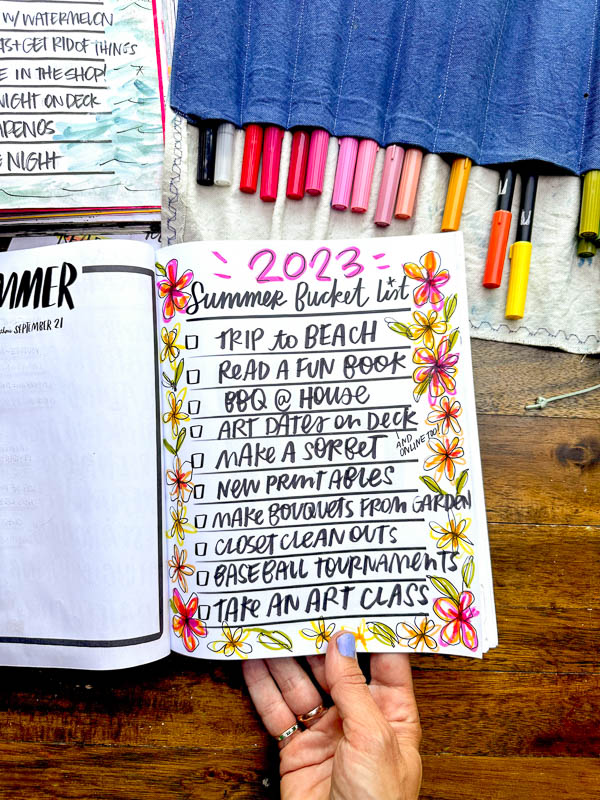 W/ WATERMELON
+ GET RID OF THINGS
IN THE SHOP!
NIGHT ON DECK
NIGHT
SEPTEMBER 21
2023
Summer Bucket List
TRIP to BEACH
READ A FUN BOOK
BBQ @ HOUSE
ART DATES on DECK
AND
ONLINE TOO!
MAKE A SORBET
NEW PRINTABLES
MAKE BOUQUETS FROM GARDEN
CLOSET CLEAN OUTS
BASEBALL TOURNAMENTS
TAKE AN ART CLASS